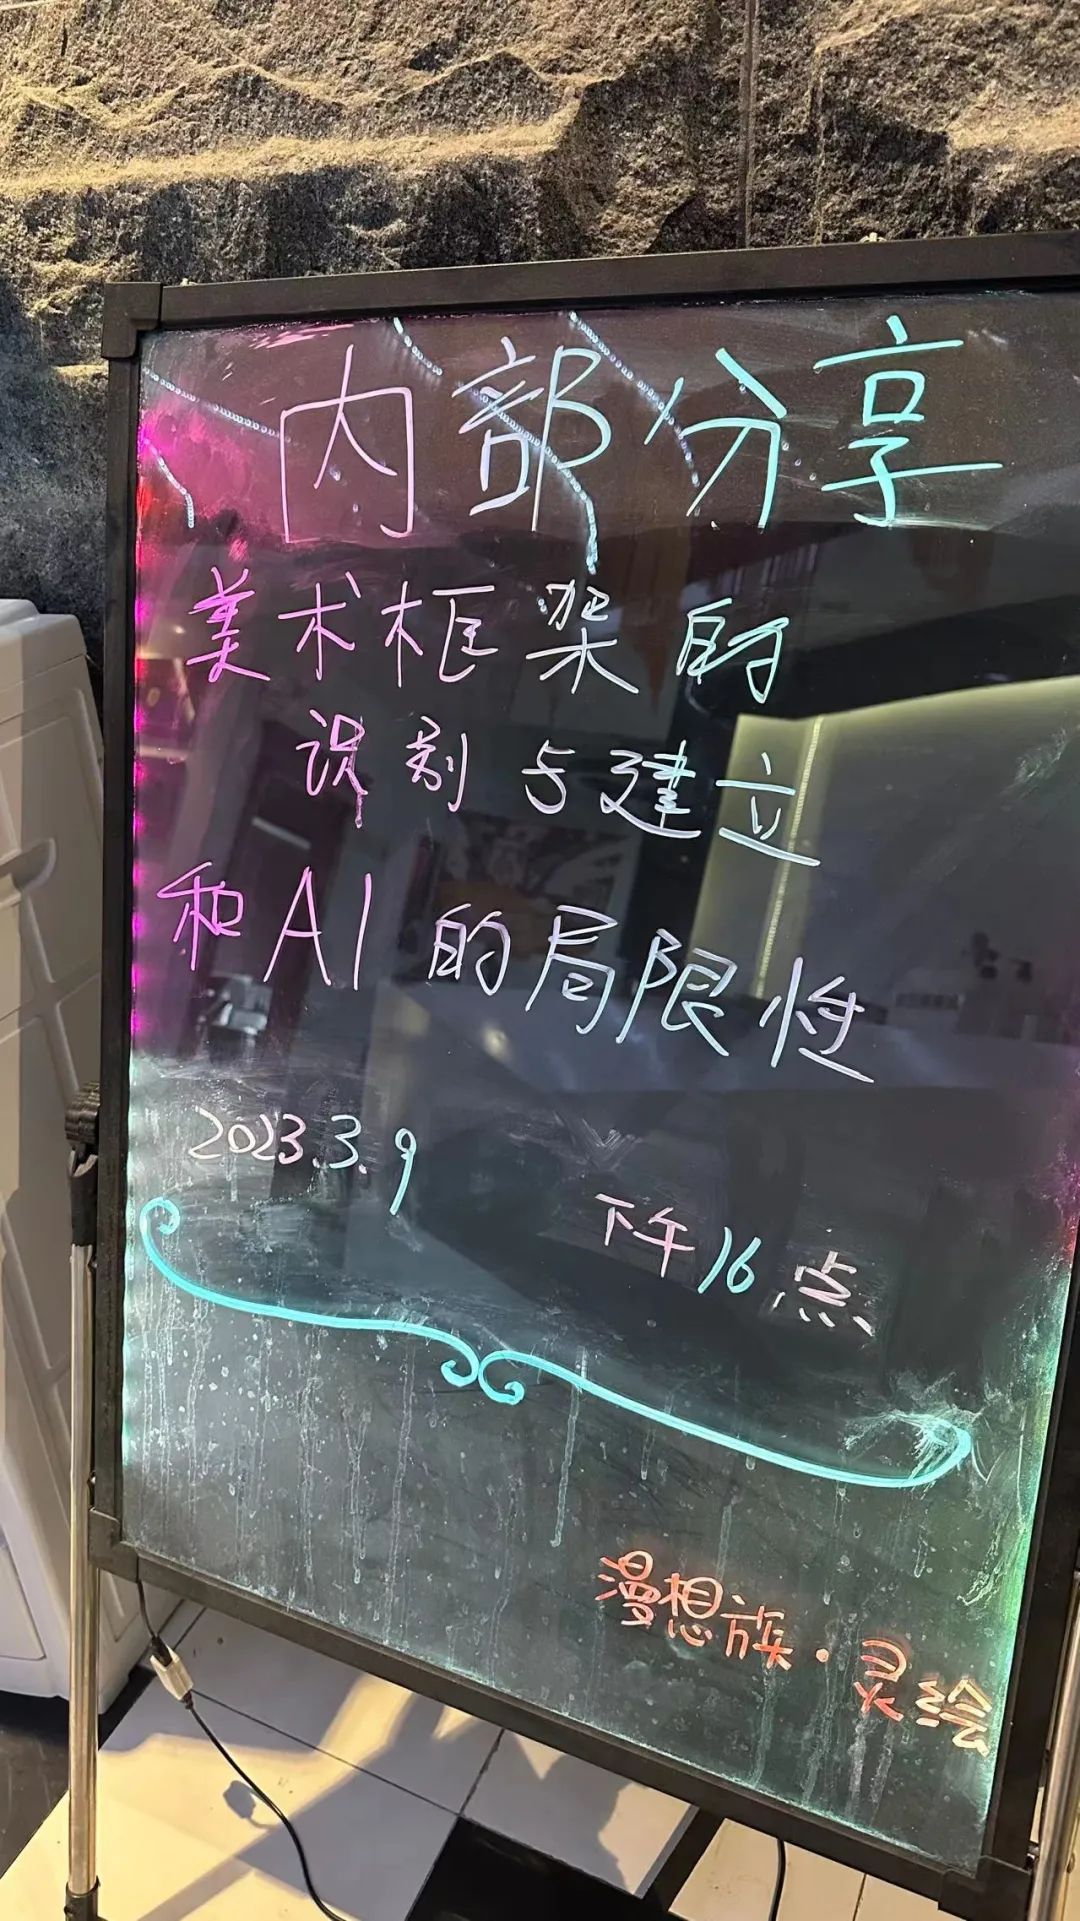 内部分享
美术框架的
识别与建立
和AI的局限性
2023.3.9
下午16点
漫想族·灵绘